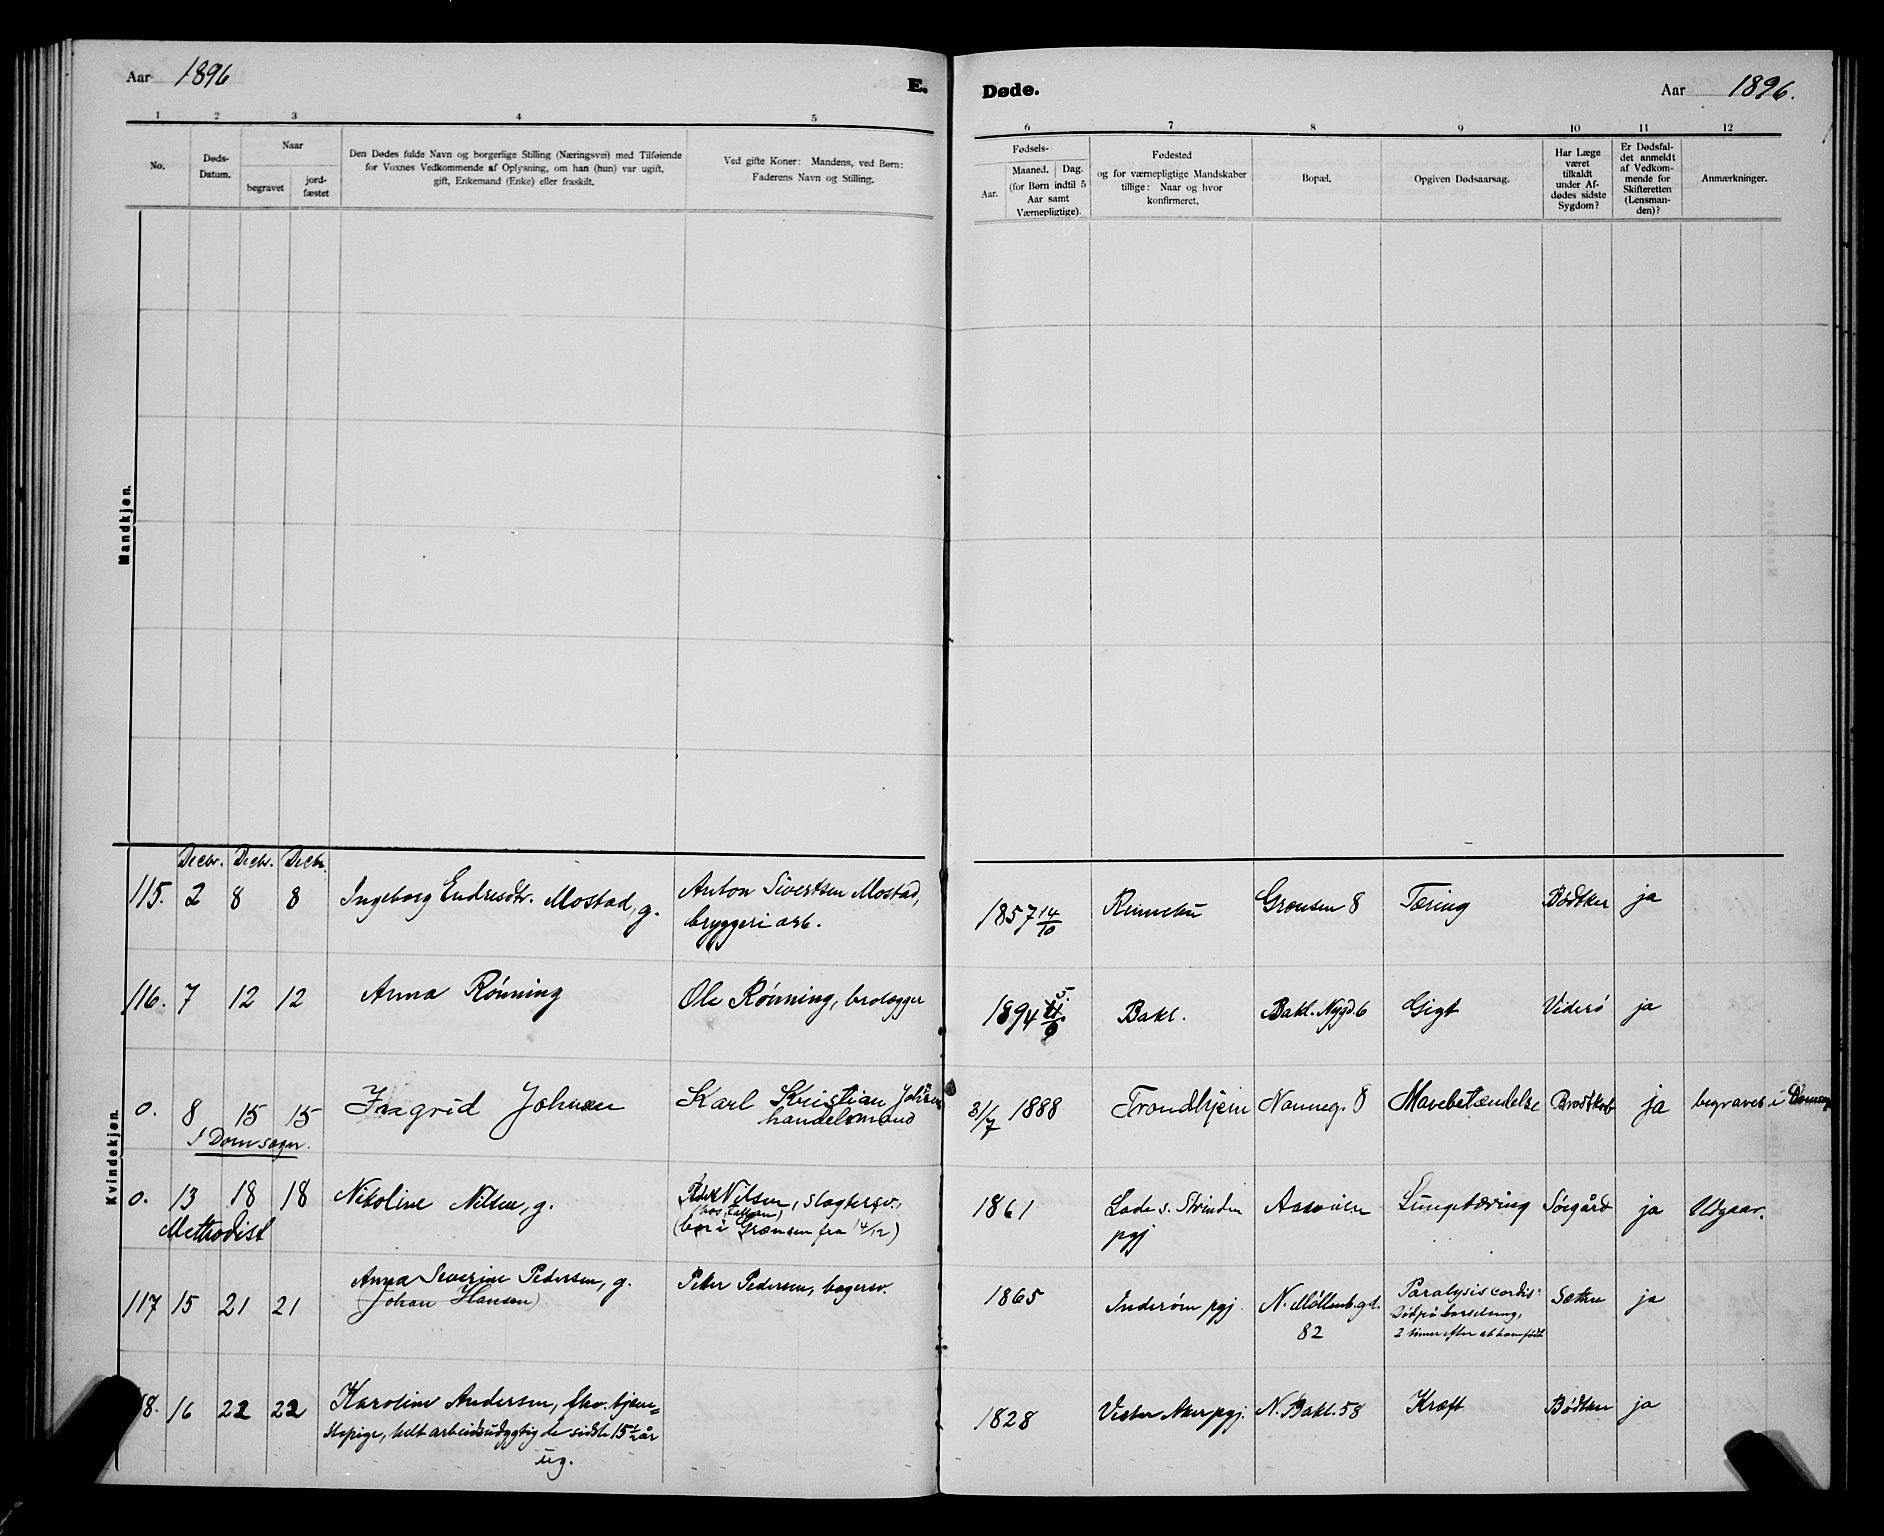 Aar 1896
E.
Døde.
Aar 1896.
1 2 3 4 5 6 7 8 9 10 11 12
No.
Døds-
Datum.
Naar
begravet
jord-
fæstet
Den Dødes fulde Navn og borgerlige Stilling (Næringsvei) med Tilføiende
for Voxnes Vedkommende af Oplysning, om han (hun) var ugift,
gift, Enkemand (Enke) eller fraskilt.
Ved gifte Koner: Mandens, ved Børn:
Faderens Navn og Stilling.
Fødsels-
Aar.
Maaned. Dag.
(for Børn indtil 5
Aar samt
Værnepligtige).
Fødested
og for værnepligtige Mandskaber
tillige: Naar og hvor
konfirmeret.
Bopæl.
Opgiven Dødsaarsag.
Har Læge
været
tilkaldt
under Af-
dødes sidste
Sygdom?
Er Dødsfal-
det anmeldt
af Vedkom-
mende for
Skifteretten
(Lensman-
den)?
Anmærkninger.
Mandkjøn.
Kvindekjøn.
Decbr. Decbr. Decbr.
115. 2 8 8 Ingeborg Endresdtr. Mostad, g. Anton Sivertsen Mostad,
bryggeri arb.
1857 14/10 Rennebu Grænsen 8 Tæring Bødtker ja
116. 7 12 12 Anna Rønning Ole Rønning, brolægger 1894 Bakl. Bakl. Nygd. 6 Gigt Viderö ja
0. 8 15 15 Ingrid Johnsen Karl Kristian Johnsen
handelsmand
31/7 1888 Trondhjem Nanneg. 8 Mavebetændelse ja begraves i
i Domsogn.
0. 13 18 18 Nikoline Nilsen, g. Nilsen, slagtersv.,
(bor i Grænsen fra 14/12)
Methodist
1861 Lade s. Strinden
pgj
Aasveien Lungetæring Søegård ja Udgaar.
117 15 21 21 Anna Severine Pedersen, g.
Johan Hansen)
Peter Pedersen, bagersv.
1865 Inderøen pgj. N. Møllenb. gd.
82
Paralysis cordis:
Død på barselseng,
2 timer efter at barn født
Sættre ja
118. 16 22 22 Karoline Andersen, fhv. tjene=
stepige, helt arbeidsudygtig de sidste 15 1/2 år
ug.
1828 Vestre Aker pgj. N. Bakl. 58 Kræft Bødtker ja